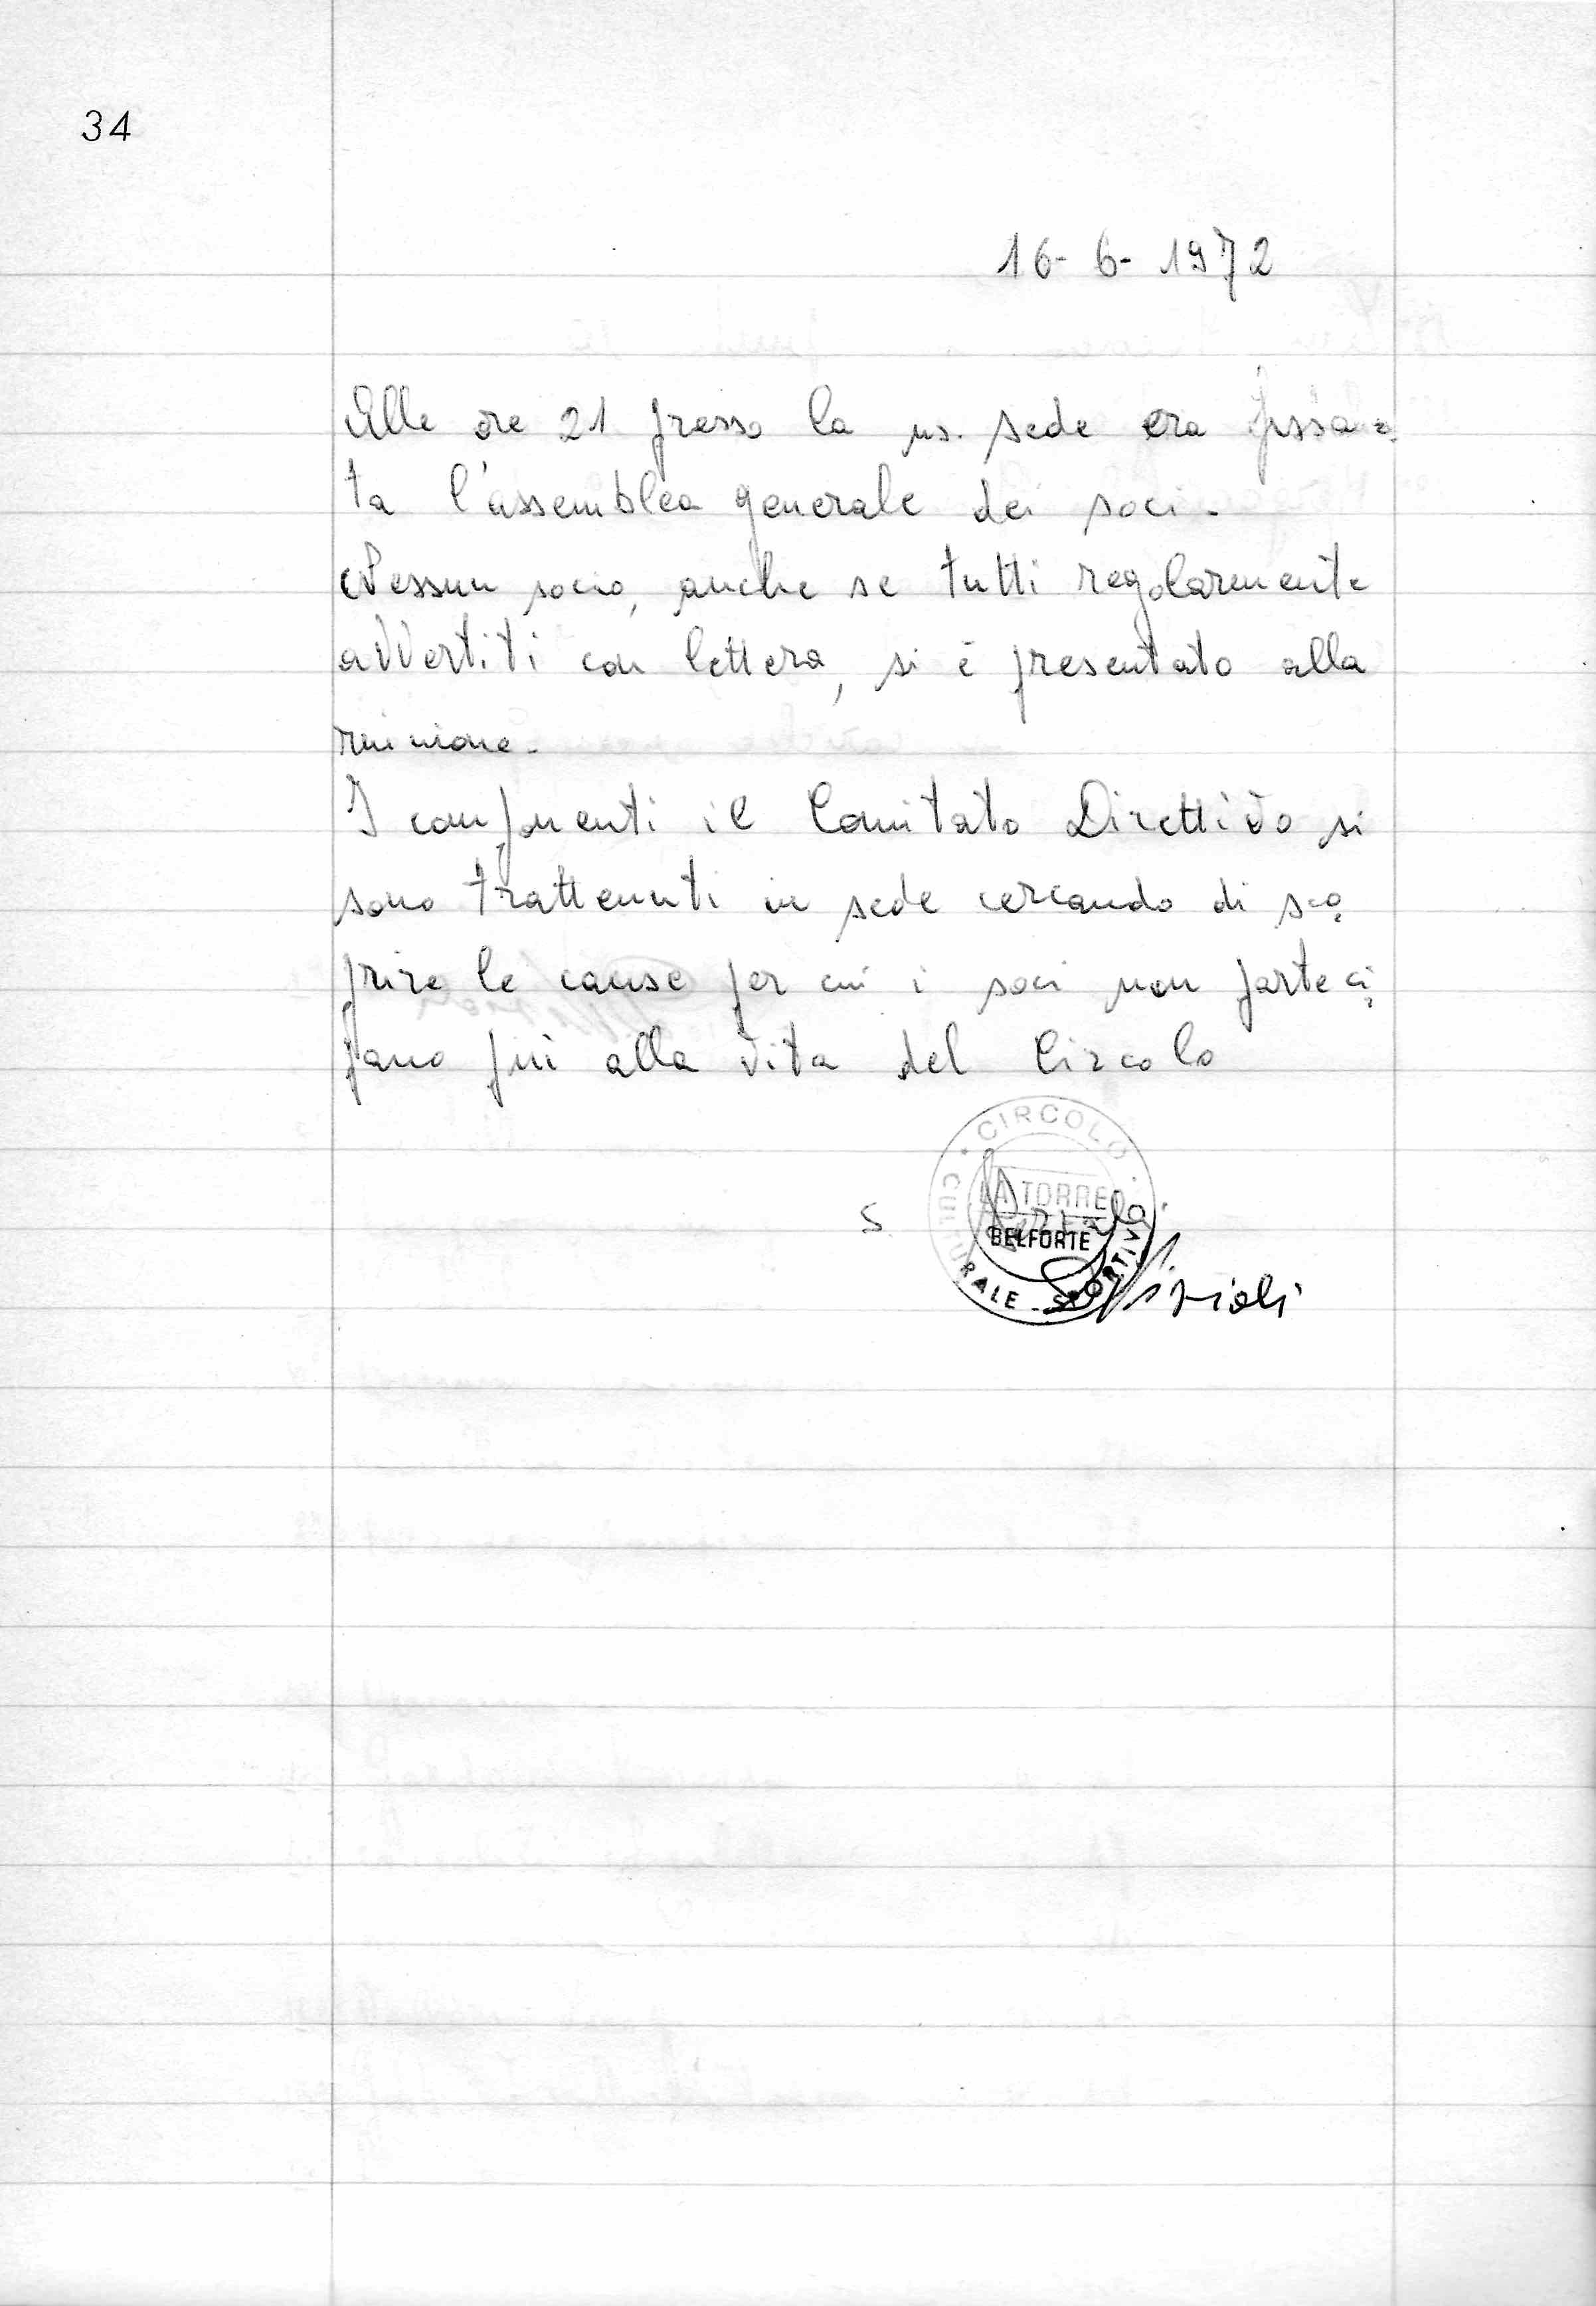 34
16-6-1972
Alle ore 21 presso la ns. sede era fissa=
ta l'assemblea generale dei soci.
Nessun socio, anche se tutti regolarmente
avvertiti con lettera, si è presentato alla
riunione.
I componenti il Comitato Direttivo si
sono trattenuti in sede cercando di sco=
prire le cause per cui i soci non parteci=
pano più alla vita del Circolo
CIRCOLO
CULTURALE - SPORTIVO
LA TORRE
BELFORTE